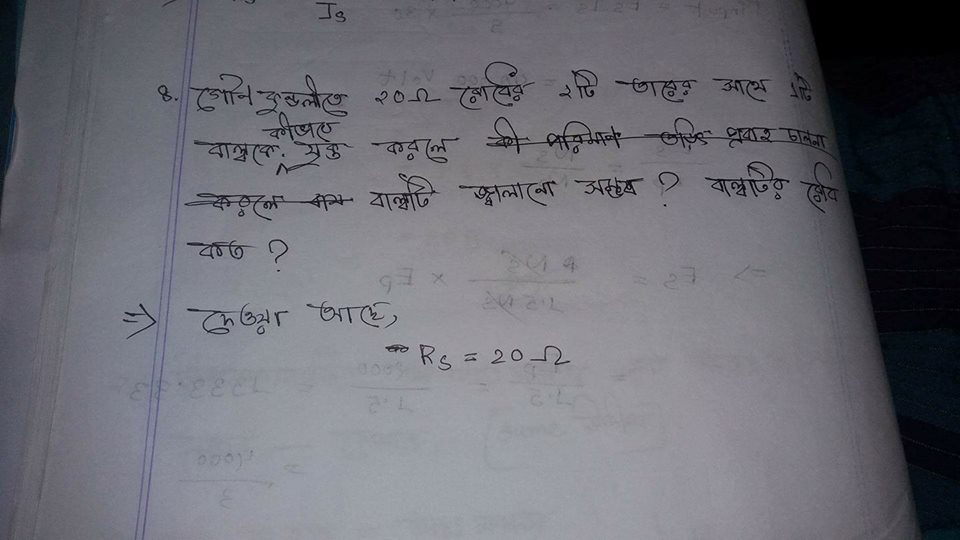 Is
8. গৌন কুন্ডলীতে 20Ω রোধের ২টি তারের সাথে ১টি
বাল্বকে কীভাবে যুক্ত করলে কী পরিমান তড়িৎ প্রবাহ চালনা
করলে বাল্বটি জ্বালানো সম্ভব ? বাল্বটির রোধ
কত ?
⇒ দেওয়া আছে,
Rs = 20Ω